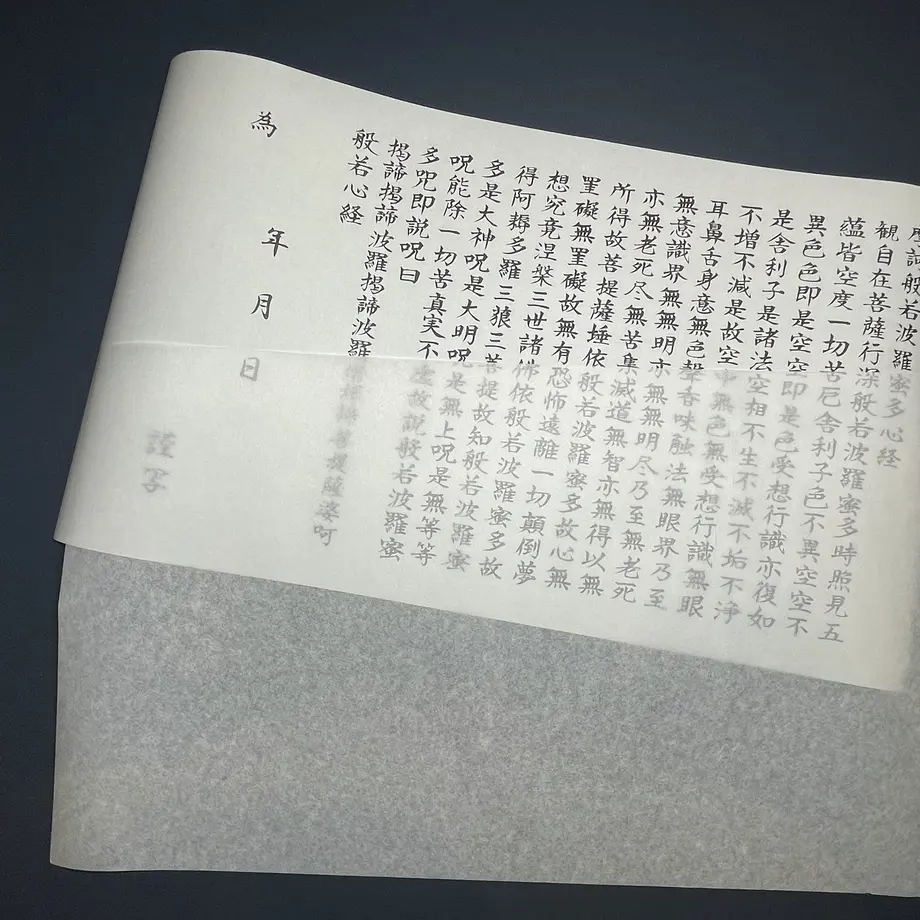 摩訶般若波羅蜜多心経
観自在菩薩行深般若波羅蜜多時照見五
蘊皆空度一切苦厄舎利子色不異空空不
異色色即是空空即是色受想行識亦復如
是舎利子是諸法空相不生不滅不垢不浄
不増不減是故空中無色無受想行識無眼
耳鼻舌身意無色聲香味触法無眼界乃至
無意識界無無明亦無無明尽乃至無老死
亦無老死尽無苦集滅道無智亦無得以無
所得故菩提薩埵依般若波羅蜜多故心無
罣礙無罣礙故無有恐怖遠離一切顛倒夢
想究竟涅槃三世諸佛依般若波羅蜜多故
得阿耨多羅三藐三菩提故知般若波羅蜜
多是大神呪是大明呪是無上呪是無等等
呪能除一切苦真実不虚故説般若波羅蜜
多呪即説呪曰
揭諦揭諦 波羅揭諦波羅僧揭諦菩提薩婆訶
般若心経
為
年 月 日
謹写